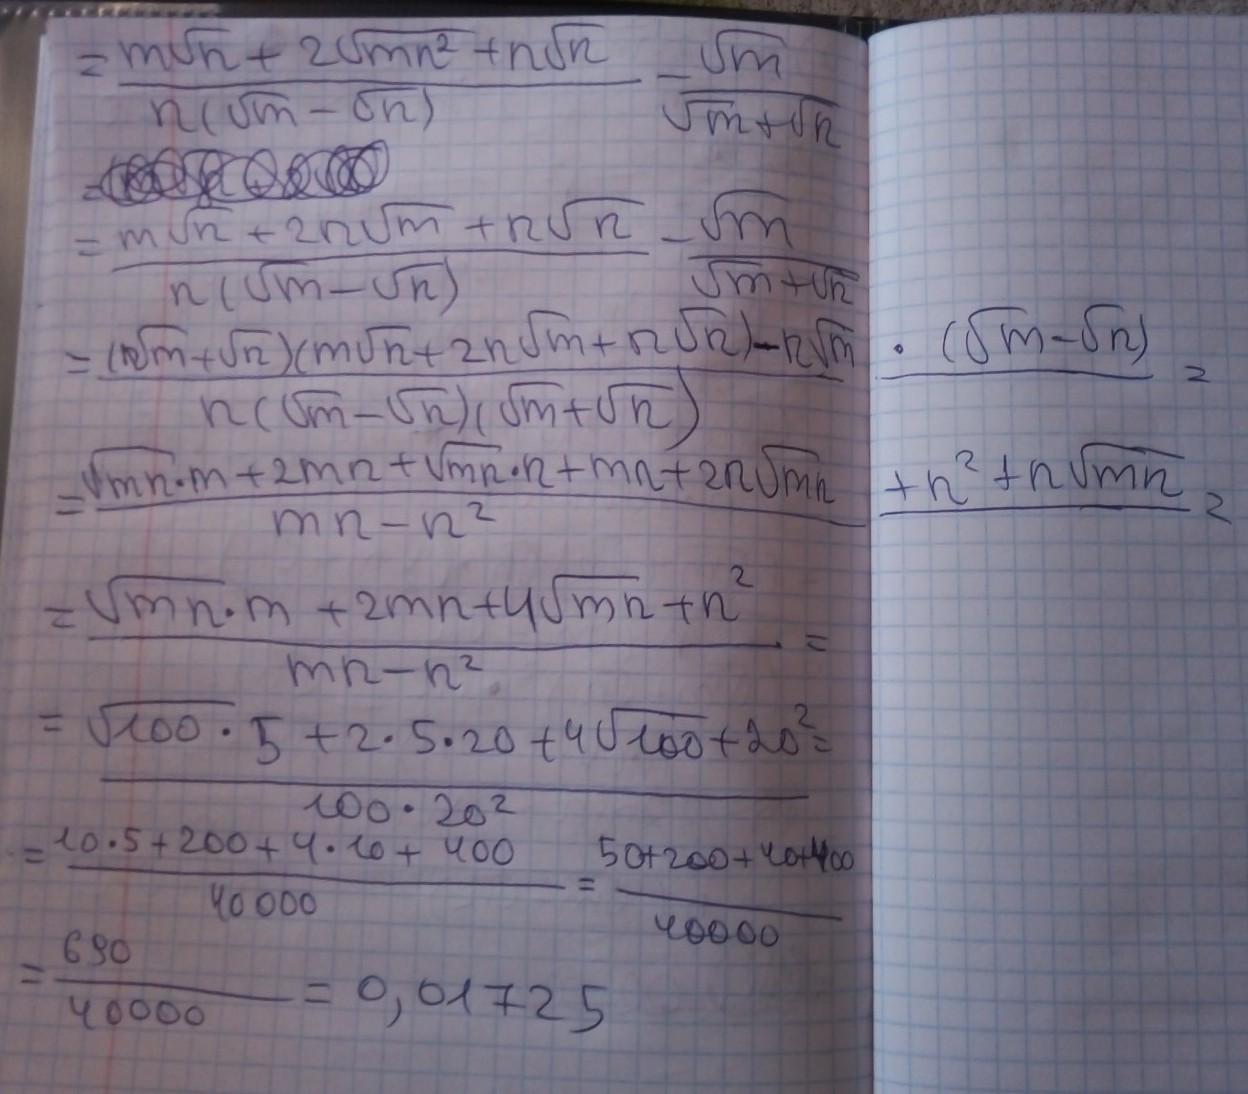 = (m√n + 2√mn² + n√n) / (n(√m − √n)) − √m / (√m + √n)
=
= (m√n + 2n√m + n√n) / (n(√m − √n)) − √m / (√m + √n)
= ((√m + √n)(m√n + 2n√m + n√n) − n√m · (√m − √n)) / (n(√m − √n)(√m + √n)) =
= (√mn · m + 2mn + √mn · n + mn + 2n√mn + n² + n√mn) / (mn − n²) =
= (√mn · m + 2mn + 4√mn + n²) / (mn − n²) =
= (√100 · 5 + 2 · 5 · 20 + 4√100 + 20²) / (100 · 20²) =
= (10 · 5 + 200 + 4 · 10 + 400) / 40000 = (50 + 200 + 40 + 400) / 40000
= 690 / 40000 = 0,01725